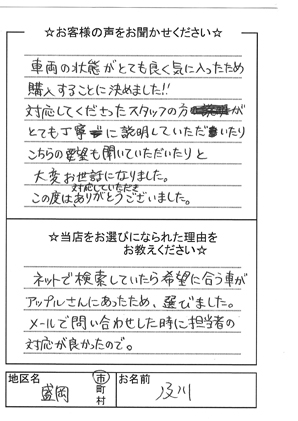 ☆お客様の声をお聞かせください☆
車両の状態がとても良く気に入ったため
購入することに決めました!!
対応してくださったスタッフの方が
とても丁寧に説明していただいたり
こちらの要望も聞いていただいたりと
大変お世話になりました。
対応していただき
この度はありがとうございました。
☆当店をお選びになられた理由を
お教えください☆
ネットで検索していたら希望に合う車が
アップルさんにあったため、選びました。
メールで問い合わせした時に担当者の
対応が良かったので。
地区名 盛岡 市 町 村 お名前 及川